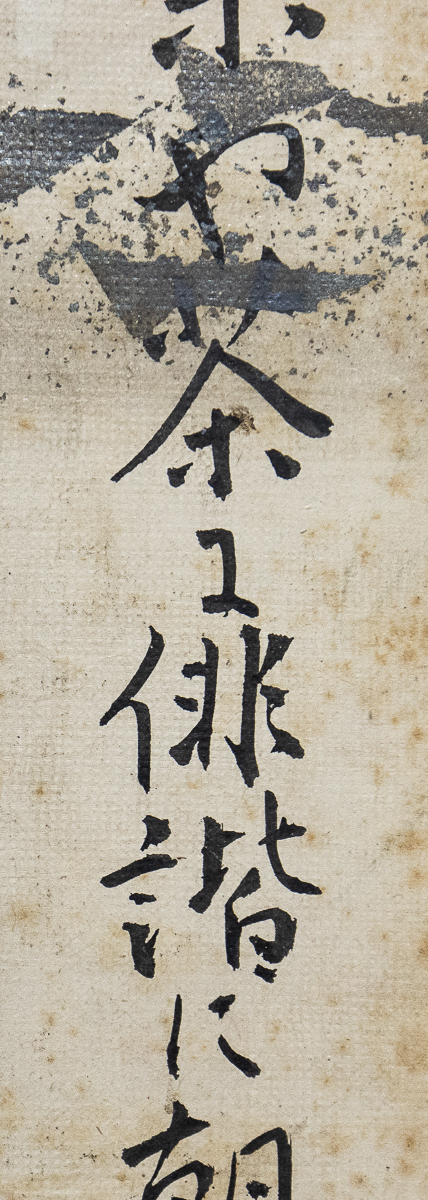 や茶に俳諧に朝